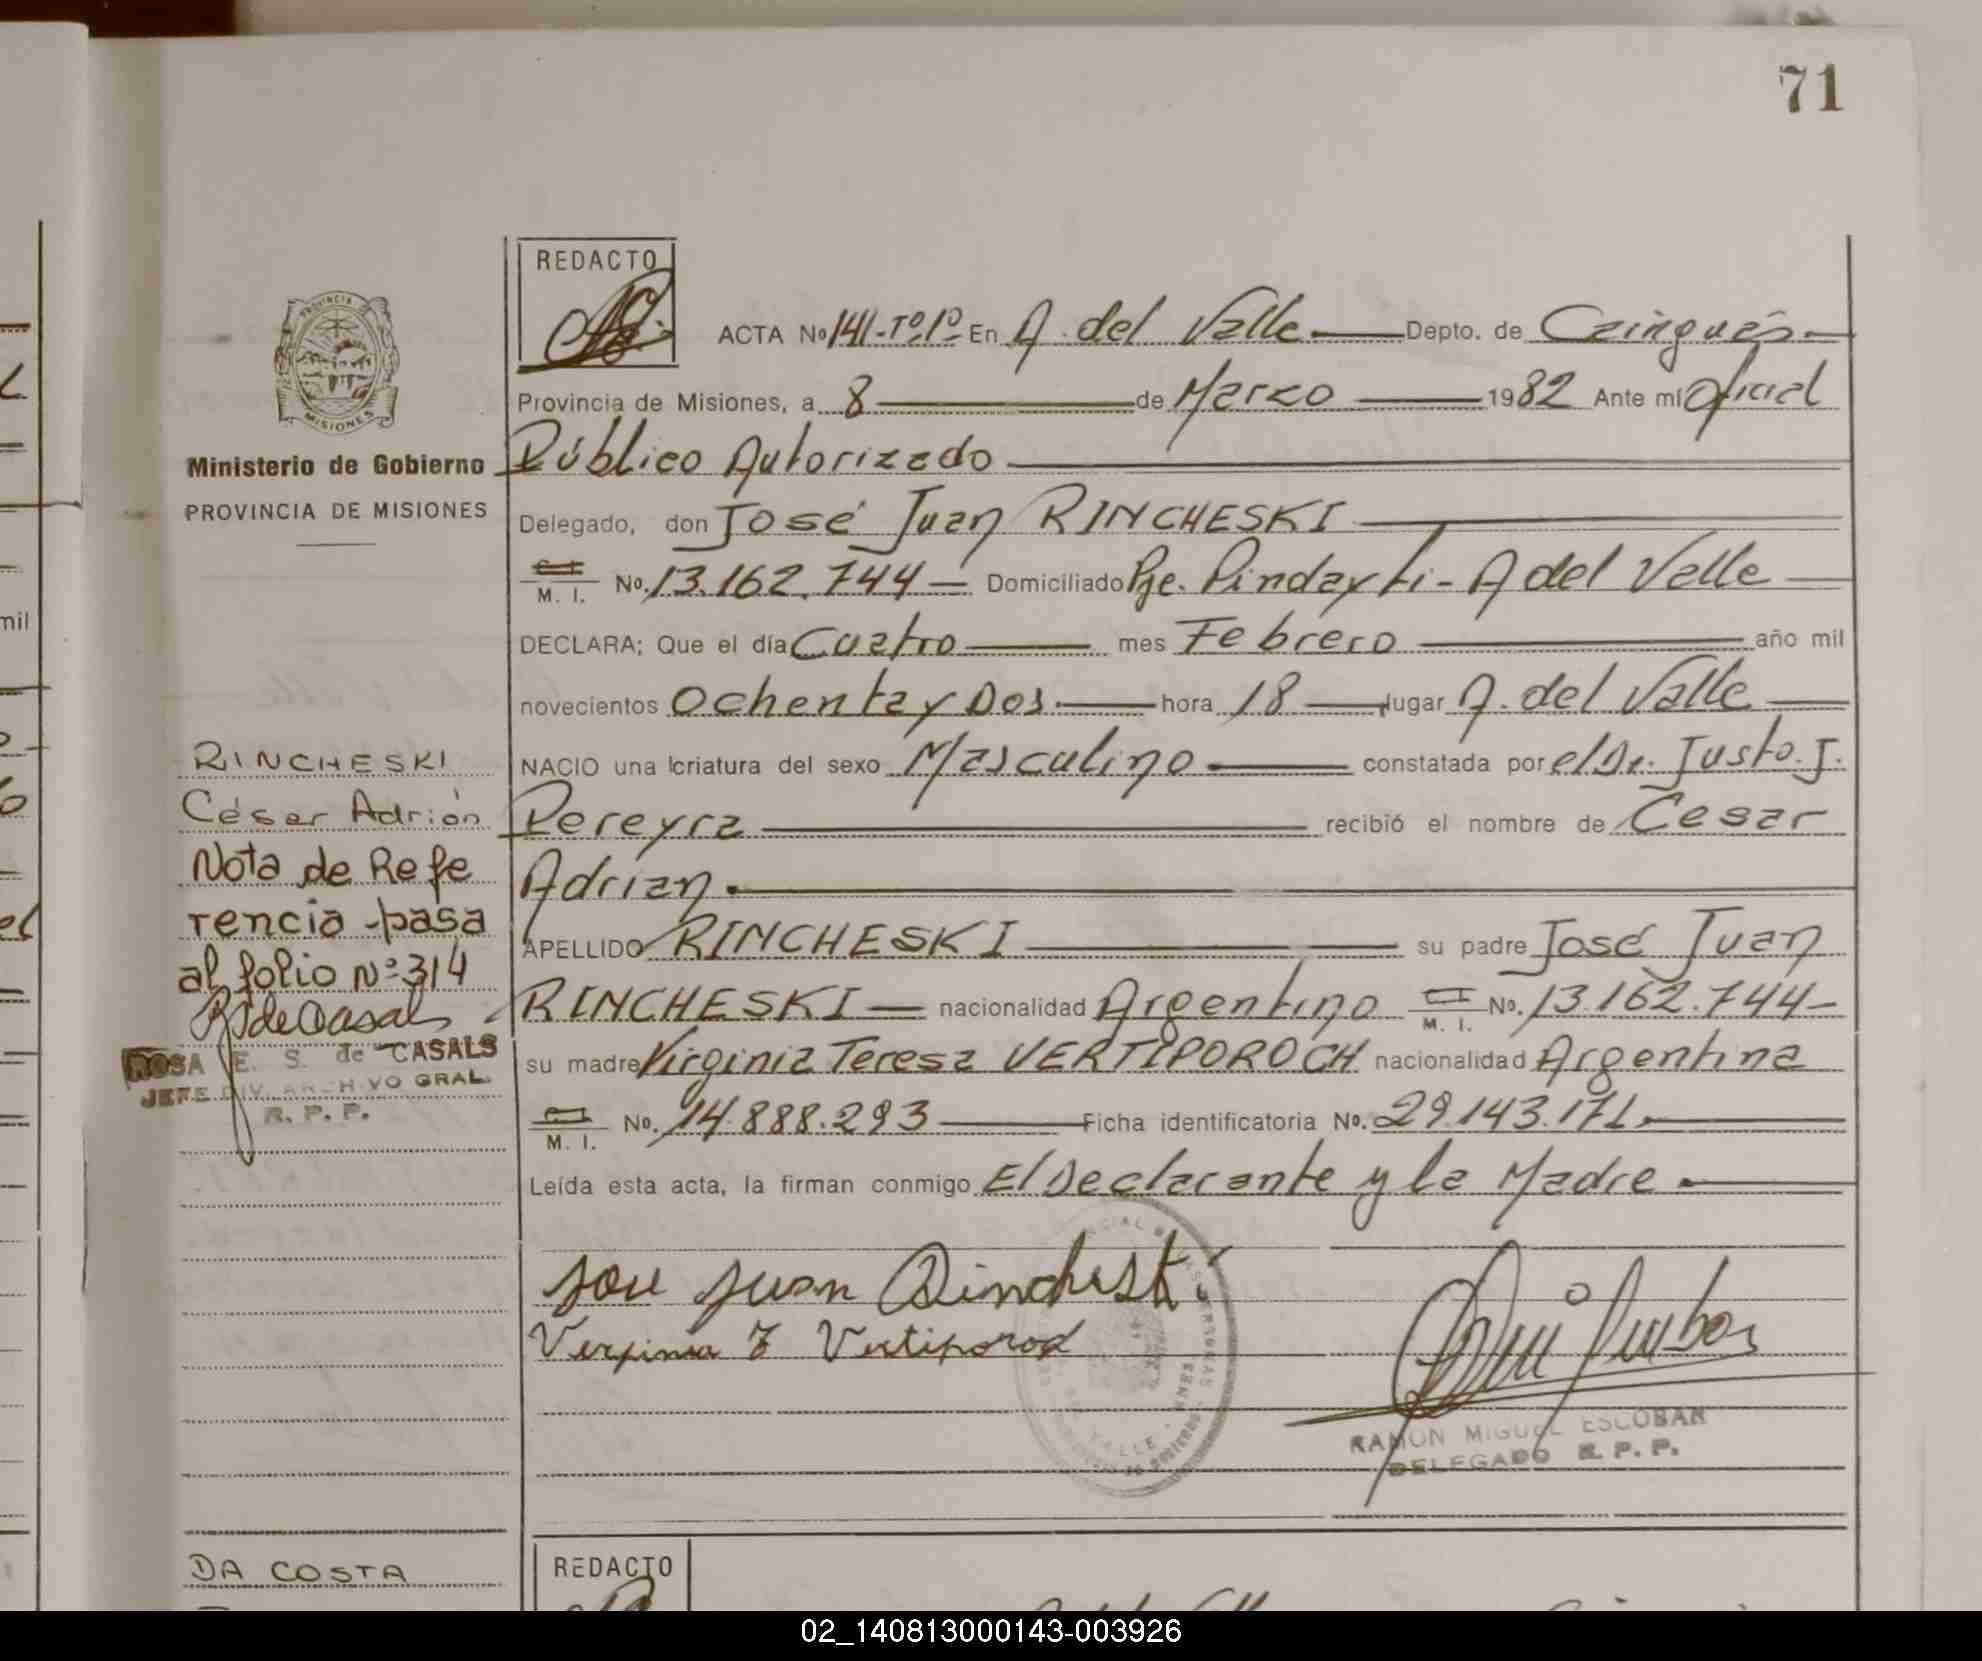 71
REDACTO
ACTA No 141-Tº.1º- En A. del Valle Depto. de Cainguás
Provincia de Misiones, a 8 de Marzo 1982 Ante mí Oficial
Público Autorizado
Delegado, don José Juan RINCHESKI
C I M. I. No. 13.162.744 Domiciliado Pje. Pindayti - A del Valle
DECLARA; Que el día Cuatro mes Febrero año mil
novecientos Ochenta y Dos hora 18 lugar A. del Valle
NACIO una criatura del sexo Masculino constatada por el Dr. Justo. J.
Pereyra recibió el nombre de Cesar
Adrian
APELLIDO RINCHESKI su padre José Juan
RINCHESKI nacionalidad Argentino C I M. I. No. 13.162.744
su madre Virginia Teresa VERTIPOROCH nacionalidad Argentina
C I M. I. No. 14.888.293 Ficha identificatoria No. 29.143.171
Leída esta acta, la firman conmigo El Declarante y la Madre
José Juan Rincheski
Verginia T Vertiporoch
RAMON MIGUEL ESCOBAR
DELEGADO R. P. P.
PROVINCIA DE MISIONES
Ministerio de Gobierno
PROVINCIA DE MISIONES
RINCHESKI
César Adrión
Nota de Refe
rencia pasa
al folio Nº 314
R S de Casals
ROSA E. S. de CASALS
JEFE DIV. ARCHIVO GRAL.
R. P. P.
DA COSTA
REDACTO
mil
02_140813000143-003926